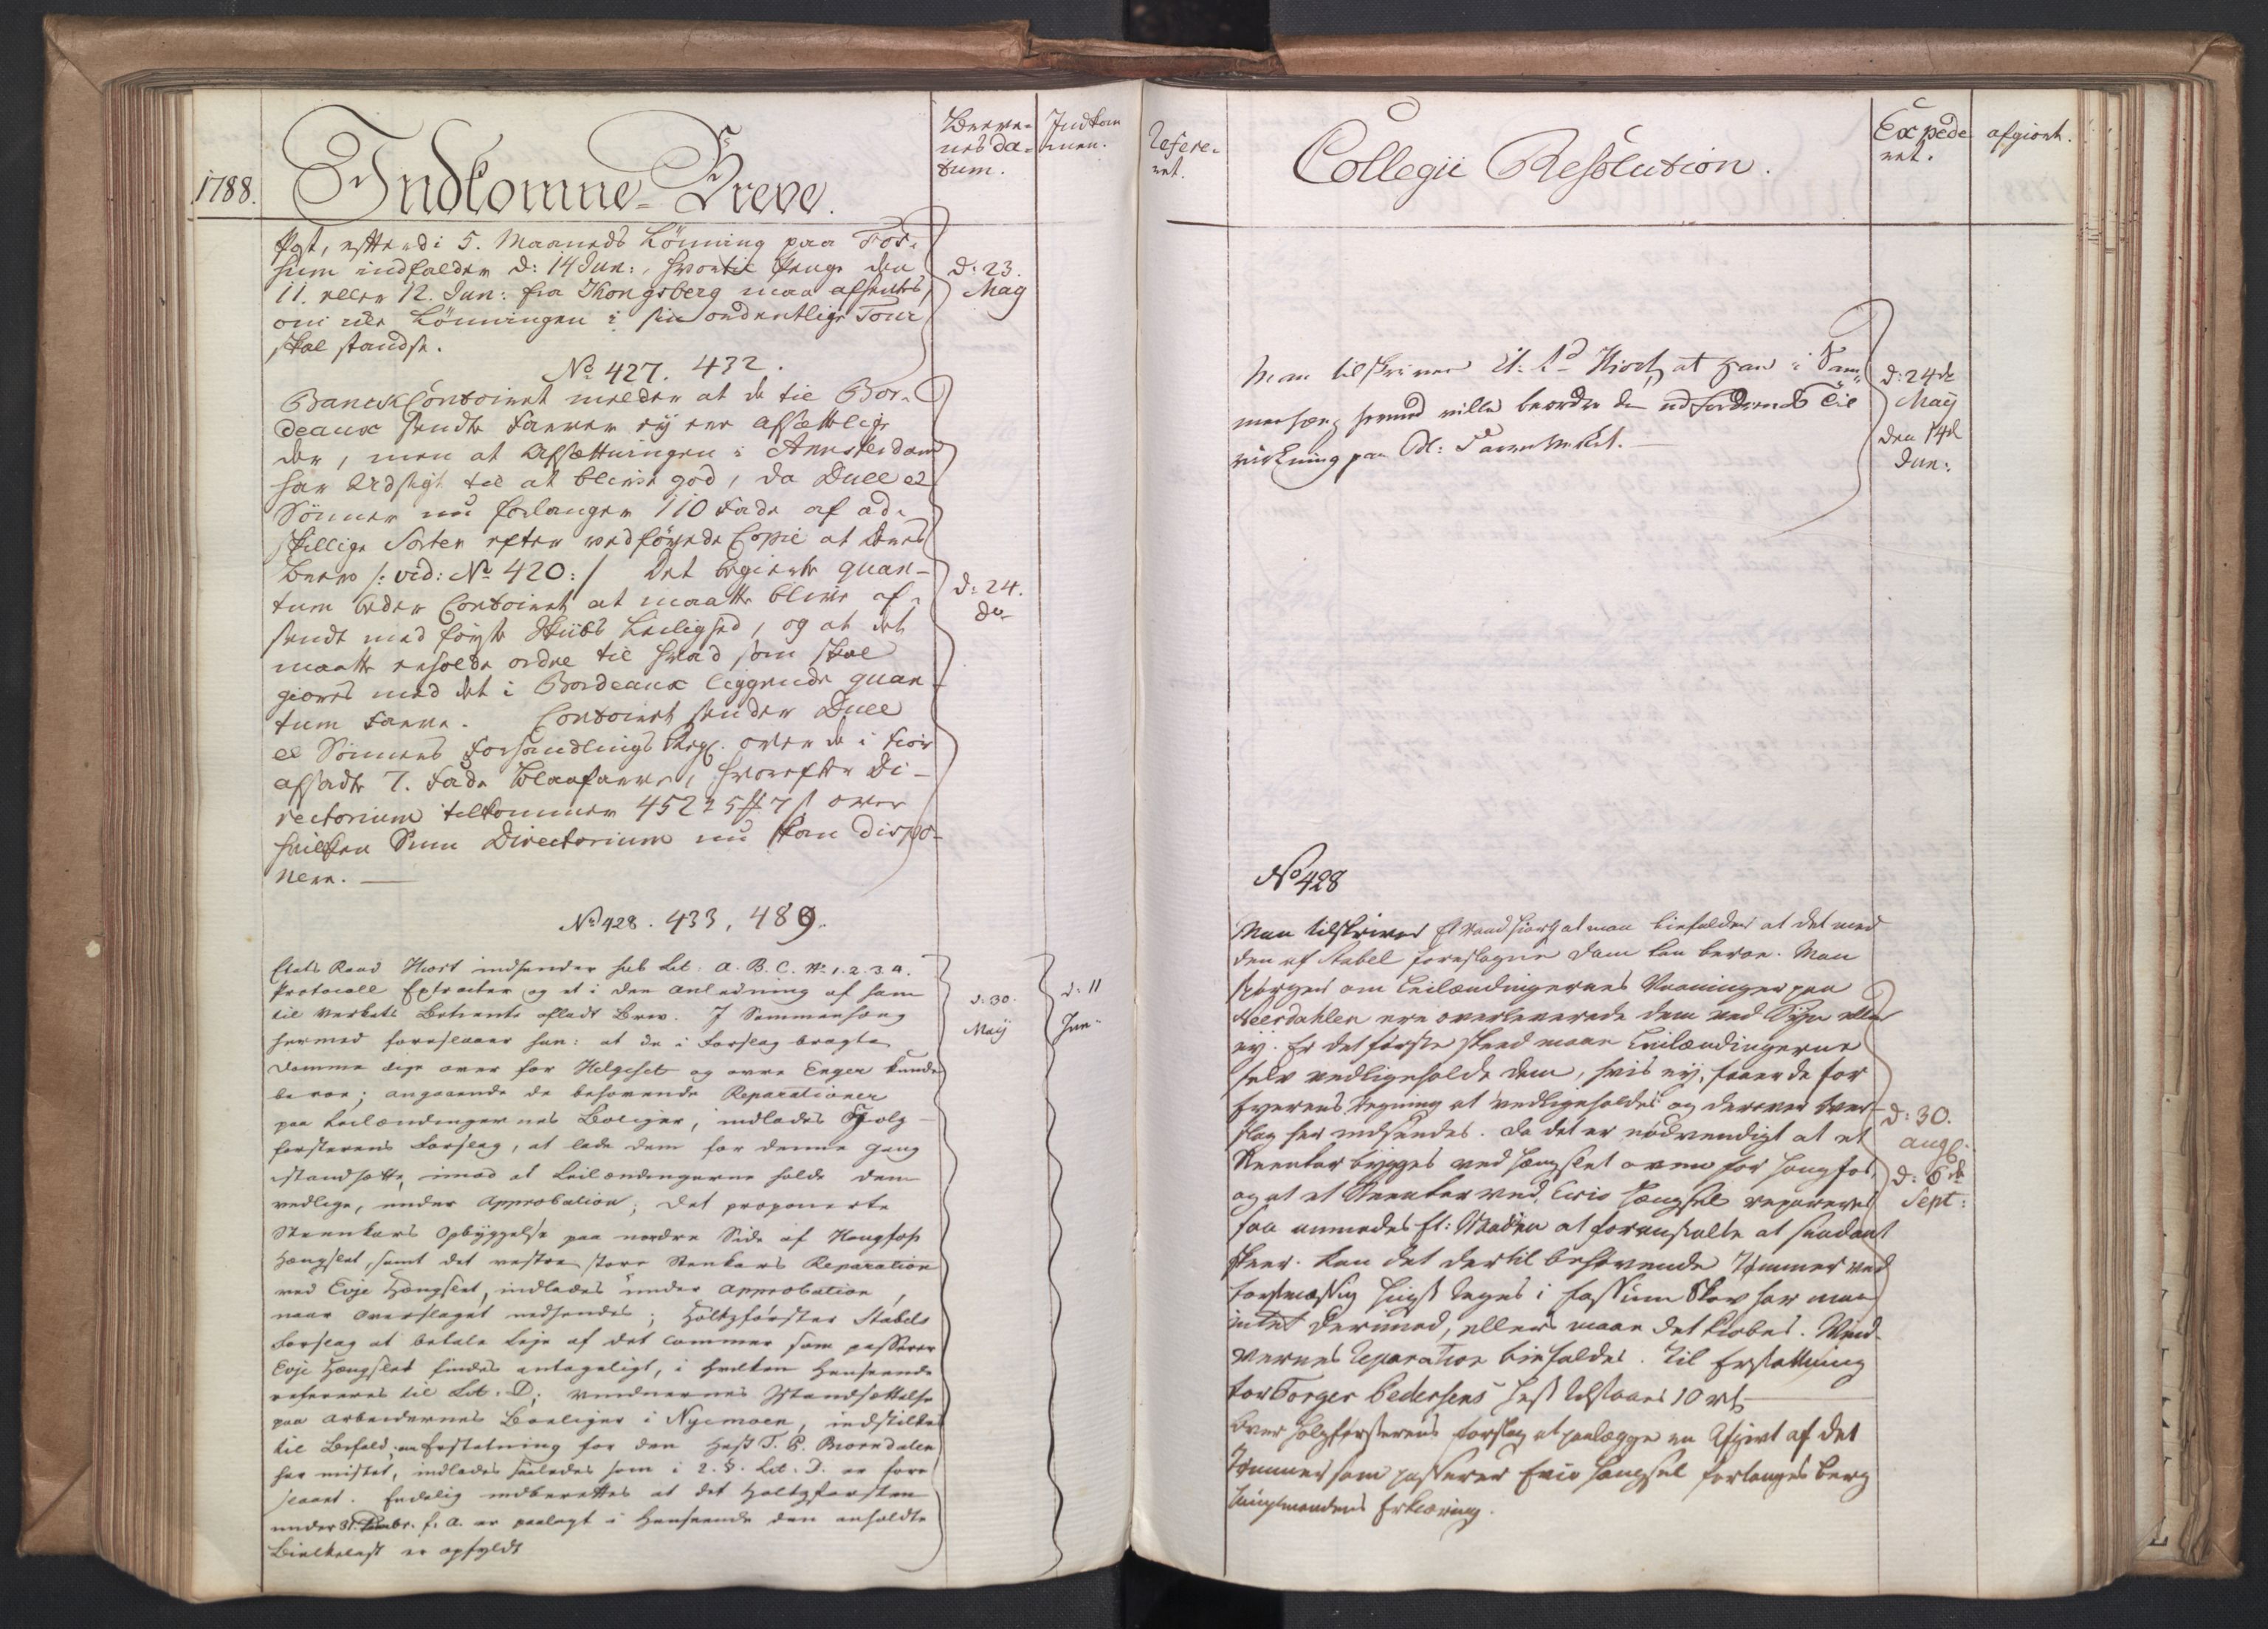 1788.
Indkomne Breve.
Breve-
nes da-
tum.
Indkom
men.
Post, efterdi 5. Maaneds Lönning paa Fos-
sum indfalder d: 14 Jun:, hvortil Penge den
11. eller 12. Jun: fra Kongsberg maa afsendes,
om ikke Lönningen i sin ordentlige Tour
skal standse.
d: 23.
May
No 427. 432.
Banck Contoiret melder at de til Bor-
deaux sendte Farver ey ere afsættelige
der, men at Afsættningen i Amsterdam
har Udsigt til at blive god, da Dull et
Sönner nu forlanger 110 Fade af ad-
skillige Sorter efter vedföyede Copie af deres
Brev /: vid: No 420:/ Det begierte quan-
tum beder Contoiret at maatte blive af-
sendt med förste Skibs Leilighed, og at det
maatte erholde ordre til hvad som skal
giöres med det i Bordeaux liggende quan-
tum Farve. Contoiret sender Dull
et Sönners Forhandlings Regn. over de i fior
afsadte 7. Fade Blaafarve, hvorefter Di-
rectorium tilkommer 452 5 # 7 s over
hvilken Sum Directorium nu kan dispo-
nere.
d: 24.
do
No 428. 433, 489.
Etats Raad Hiort indsender sub Lit. A. B. C. No 1. 2. 3. 4.
Protocoll Extracter og et i den anledning af ham
til Verkets Betiente afladt Brev. I Sammenhæng
hermed foreslaaer han: at de i Forslag bragte
Damme lige over for Helgeset og övre Enger kunde
beroe; angaaende de behövende Reparationer
paa Leilændingernes Boliger, indlades Holtz-
försterens Forslag, at lade dem for denne gang
istandsætte, imod at Leilændingerne holde dem
vedlige, under Approbation; det proponerte
Steenkars Opbyggelse paa nordre Side af Haugfoss
Hængslet, samt det vestre store Stenkars Reparation
ved Evje Hængslet, indlades under approbation,
naar Overslaget indsendes; Holtzförster Stabels
Forslag at betale Leje af det Tömmer som passerer
Evje Hængslet findes antageligt, i hvilken Henseende
refereres til Lit: D; Vinduernes Istandsættelse
paa Arbeidernes Boeliger i Nyemoen, indstilles
til Bifald; en Erstatning for den Hest T. P. Biorndalen
har mistet, indlades saaledes som i 2. §. Lit. D. er fore
slaaet. Endelig indberettes at det Holtzförsteren
under 31 Decembr. f. A. er paalagt i Henseende den anholdte
Bielkelast er opfyldt
d: 30.
Maij
d: 11
Jun:
Refere-
ret.
Collegii Resolution.
Expede
ret.
afgiort.
Man tilskriver Et: Rd Hiort, at han i Sam-
menhæng hermed ville beordre den udfordrende Til
virkning paa Bl: Farve Verket.
d: 24de
Maij
den 14de
Jun:
No 428
Man tilskriver Et Raad Hiort at man biefalder at det med
den af Stabel foreslagne Dam kan beroe. Man
spörger om Leilændingernes Vaaninger paa
Heersdahlen ere overleverede dem ved Syn eller
ey. Er det förste skeed maae Leilændingerne
selv vedligeholde dem, hvis ey, faaer de for
Eyerens Regning at vedligeholdes og derover Over-
slag her indsendes. Da det er nödvendigt at et
Steenkar bygges ved Hængslet oven for Haugfos,
og at et Steenkar ved Evie Hængsel repareres
saa anmodes Et: Raaden at foranstalte at saadant
skeer. Kan det dertil behövende Tömmer ved
forstmæssig Hugst tages i Fossum Skov har man
intet derimod, ellers maae det kiöbes. Vind-
vernes Reparation biefaldes. Til Erstattning
for Torger Pedersens Hest tilstaaes 10 rd
Over Holzförsterens Forslag at paalægge en Afgivt af det
Tömmer som passerer Evie Hængsel forlanges Berg
Hauptmandens Erklæring.
d: 30.
aug:
d: 6te
Sept: